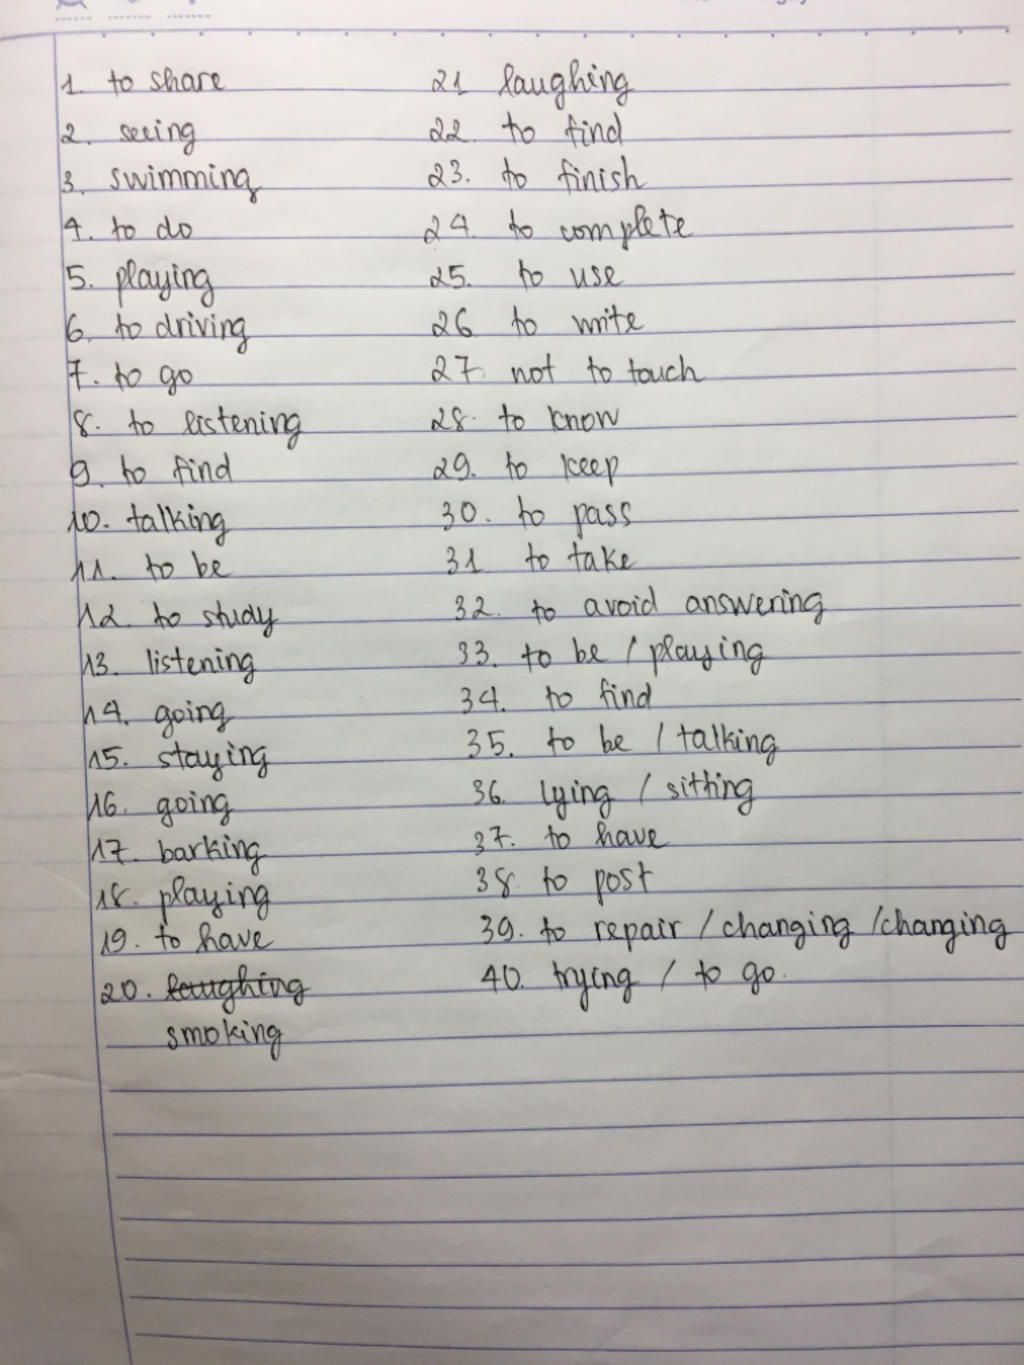 1. to share
2. seeing
3. swimming
4. to do
5. playing
6. to driving
7. to go
8. to listening
9. to find
10. talking
11. to be
12. to study
13. listening
14. going
15. staying
16. going
17. barking
18. playing
19. to have
20. laughing
smoking
21 laughing
22. to find
23. to finish
24. to complete
25. to use
26 to write
27. not to touch
28. to know
29. to keep
30. to pass
31 to take
32. to avoid answering
33. to be / playing
34. to find
35. to be / talking
36. lying / sitting
37. to have
38. to post
39. to repair / changing / changing
40. trying / to go.